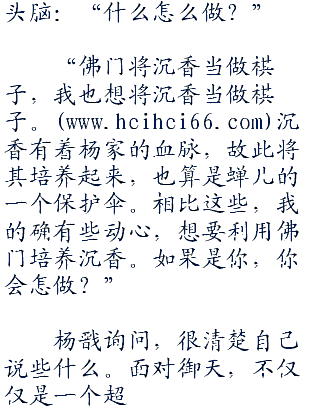 头脑：“什么怎么做？”
“佛门将沉香当做棋
子，我也想将沉香当做棋
子。(www.hcihci66.com)沉
香有着杨家的血脉，故此将
其培养起来，也算是蝉儿的
一个保护伞。相比这些，我
的确有些动心，想要利用佛
门培养沉香。如果是你，你
会怎么做？”
杨戬询问，很清楚自己
说些什么。面对御天，不仅
仅是一个超